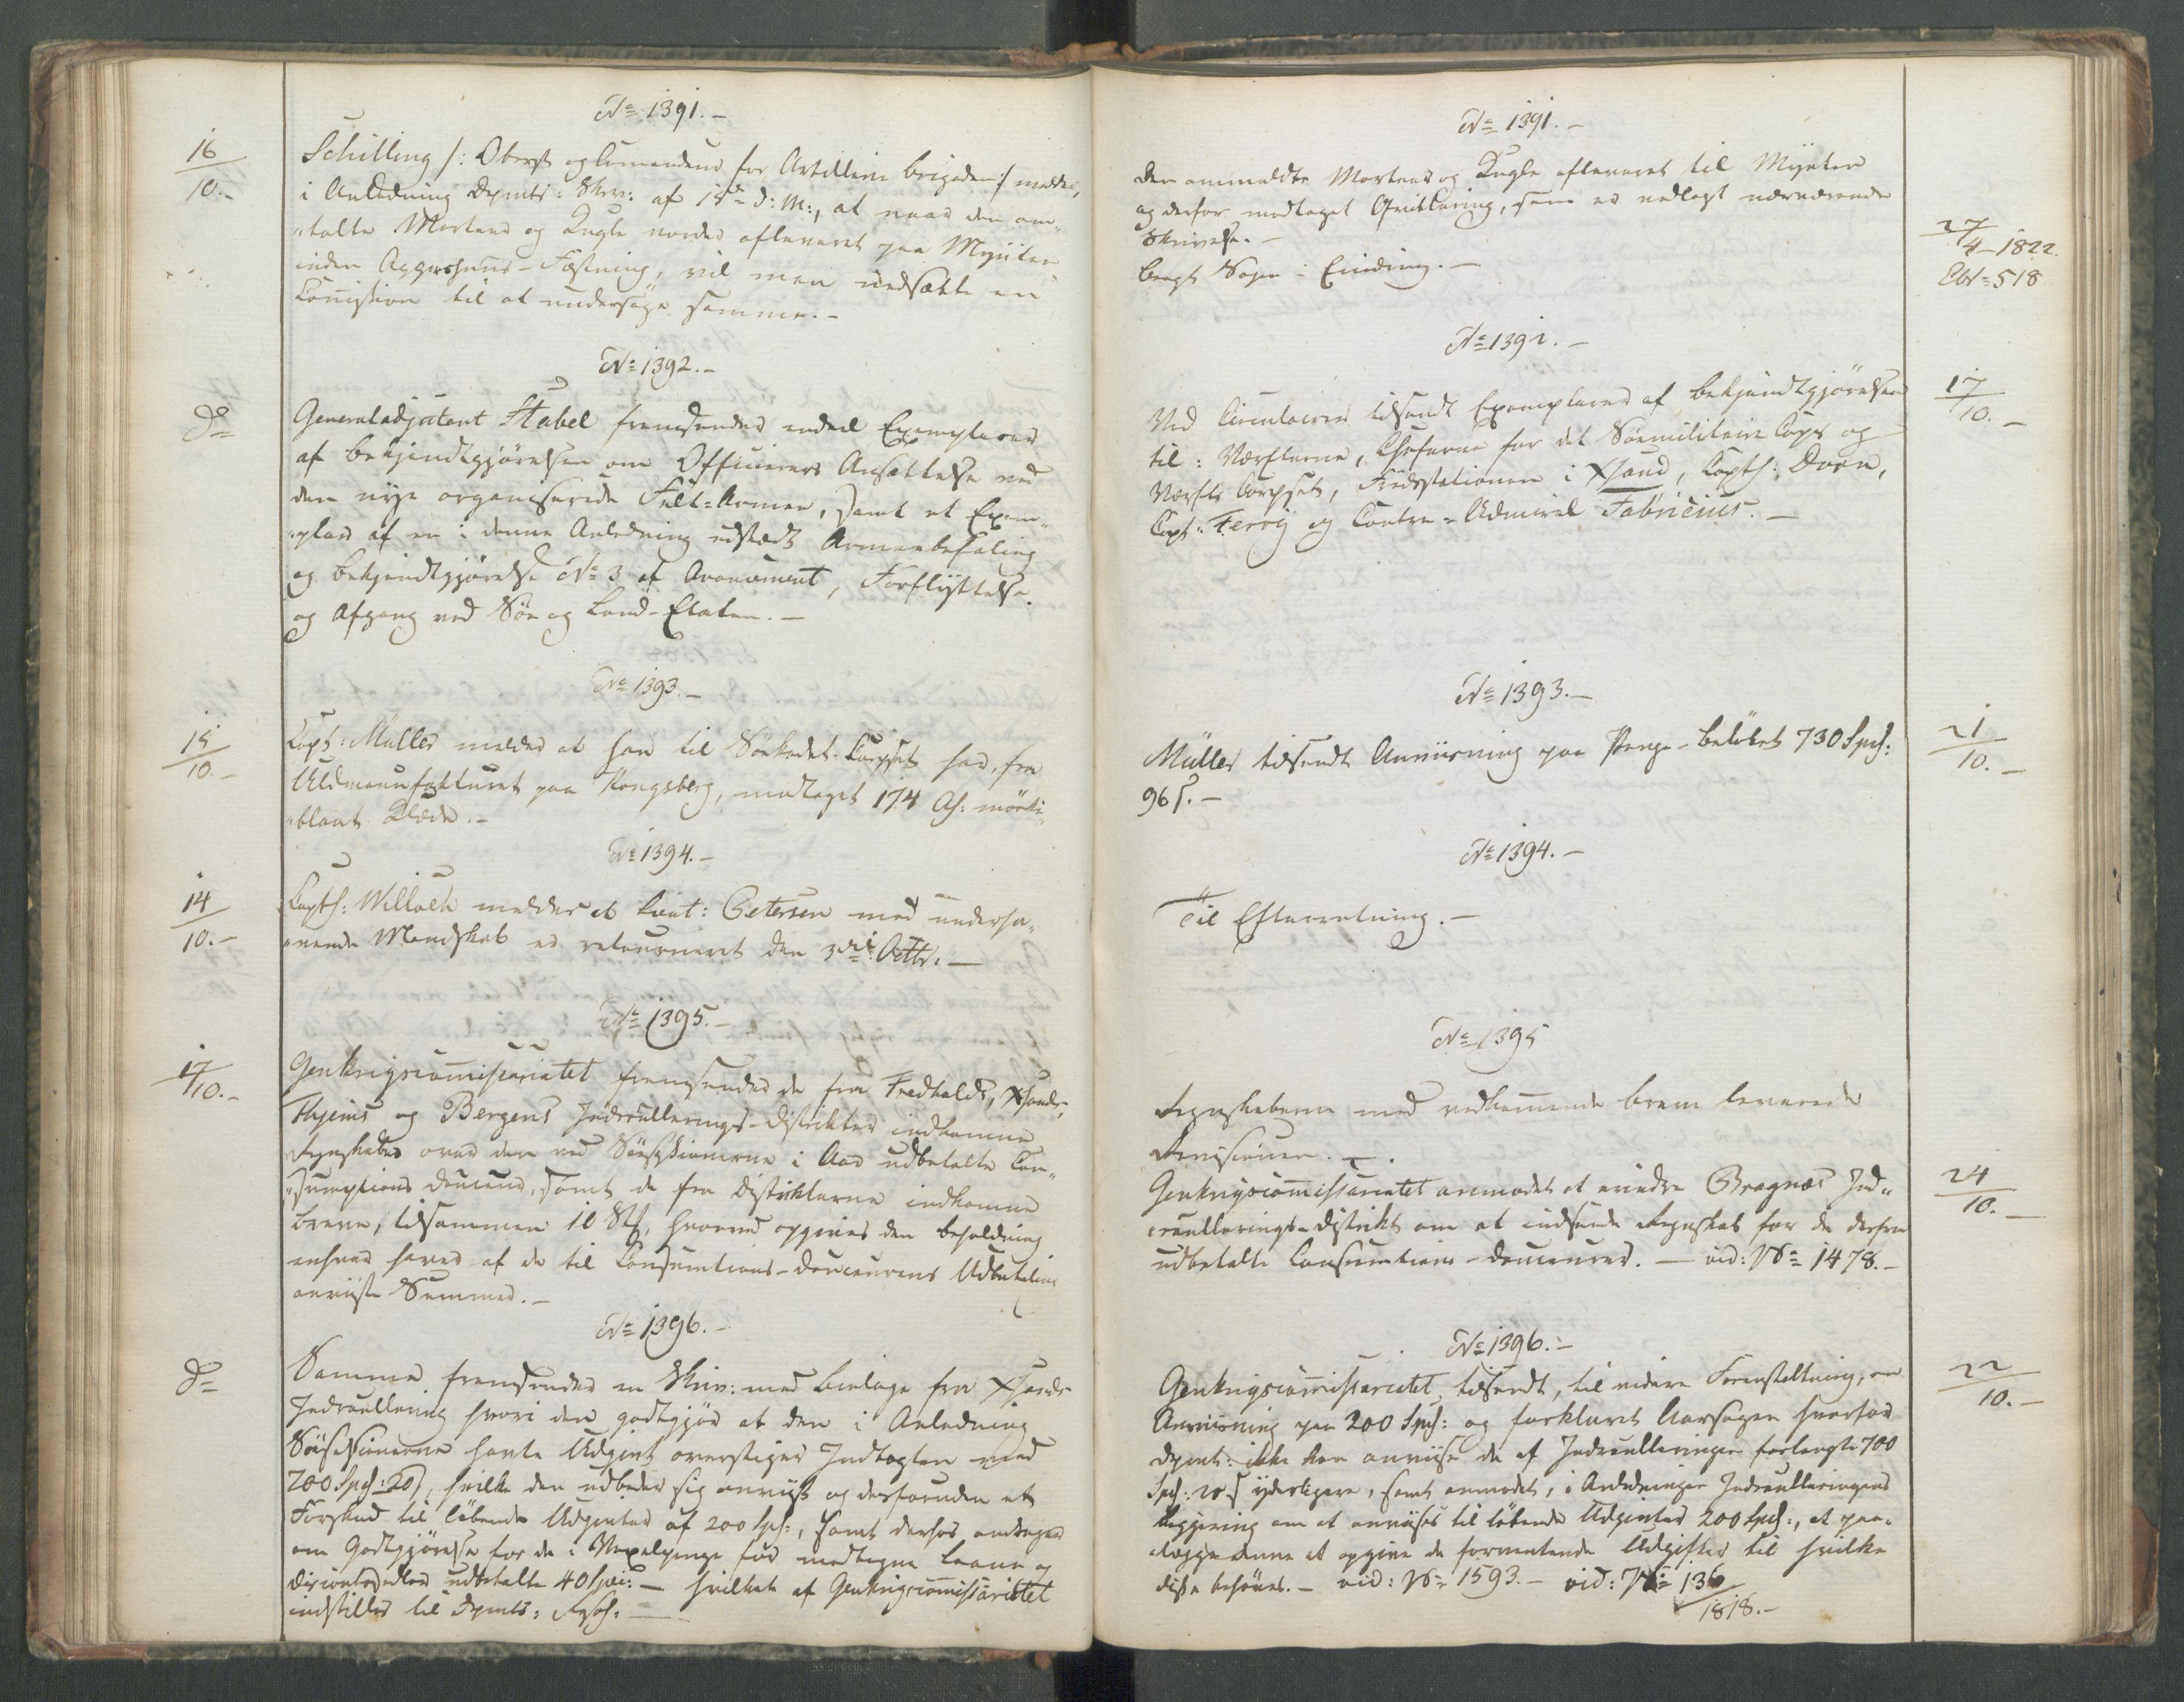 No 1391.-
16/10.-
Schilling /: Oberst og Commandeur for Artillerie brigaden :/ melder,
i Anledning Depmts: Skriv: af 15de d: M:, at naar den om-
"talte Morteer og Kugle vorder afleveret paa Mynten
inden Aggershuus-Fæstning, vil man nedsætte en
Commission til at undersøge samme.-
No 1392.-
do
Generaladjutant Stabel fremsender endeel Exemplarer
af bekjendtgjørelsen om Officierers Ansættelse ved
den nye organiserede Felt-Armee, samt et Exem-
"plar af en i denne Anledning udstædt Armeebefaling
og bekjendtgjørelse No 3 af Avancement, Forflyttelse
og Afgang ved Søe og Land-Etaten.-
No 1393.-
15/10.-
Capt: Müller melder at han til Søekadet-Corpset har, fra
Uldmanufakturet paa Kongsberg, modtaget 174 Al: mørke-
"blaat Klæde.-
No 1394.-
14/10.-
Captl: Willoch melder at Lieut: Petersen med underha-
"vende Mandskab er retourneret den 3die Octbr.-
No 1395.-
17/10.-
Genkrigscommissariatet fremsender de fra Fredhalds, Xsands,
Thjems og Bergens Indroullerings-Distrikter indkomne
Regnskaber over den ved Søesessionerne i Aar udbetalte Con-
"sumptions Douceur, samt de fra Distrikterne indkomne
breve, tilsammen 10 Stk, hvorved opgives den beholdning
enhver haver af de til Consumtions-Douceurens Udbetaling
anviiste Summer.-
No 1396.-
do
Samme fremsender en Skriv: med bielage fra Xsands
Indroullering hvori den godtgjør at den i Anledning
Søesessionerne havte Udgivt overstiger Indtægten med
700 Spd: 20 s, hvilke den udbeder sig anviist og desforuden et
Forskud til løbende Udgivter af 200 Spd:, samt derhos andrager
om Godtgjørelse for de i Vexelpenge for modtagne Laane og
Discontosedler udbetalte 40 Spd:- hvilket af Genkrigscommissariatet
indstilles til Dpmts: Resol:-
No 1391.-
Den ommeldte Morteer og Kugle afleveret til Mynten
og derfor modtaget Qvittering, som er nedlagt nærværende
Skrivelse.-
27/4-1822.
518
bragt Sagen i Erindring.-
No 1392.-
Ved Circulairer tilsendt Exemplarer af bekjendtgjørelsen
17/10.-
til: Værfterne, Cheferne for det Søemilitaire Corps og
Værfts Corpset, Fredsstationen i Xsand, Captl: Dorn,
Capt: Feroy og Contre-Admiral Fabricius.-
No 1393.-
Müller tilsendt Anviisning paa Penge-beløbet 730 Spd:
21/10.-
96 s.-
No 1394.-
Til Efterretning.-
No 1395
Regnskaberne med vedkommende breve leverede
Revisionen.-
Genkrigscommissariatet anmodet at erindre Bragnæs Ind-
24/10.-
"roullerings-Distrikt om at indsende Regnskab for de derfra
udbetalte Consumtions-Douceurer.- vid: No 1478.-
No 1396.-
Genkrigscommissariatet tilsendt, til videre Foranstaltning, en
22/10.-
Anviisning paa 200 Spd: og forklaret Aarsagen hvorfor
Dpmts: ikke kan anviise de af Indroulleringen forlangte 700
Spd: 20 s yderligere, samt anmodet, i Anledningen Indroulleringens
begjering om at anviises til løbende Udgivter 200 Spd:, at paa-
"lægge denne at opgive de forventende Udgifter til hvilke
disse behøves.- vid: No 1593.- vid: No 136/1818.-